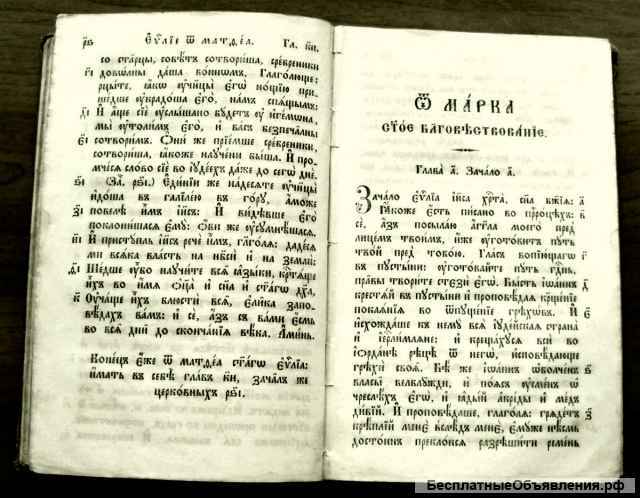 рв҃ Еѵⷢ҇лїе ѿ матѳеа. Гл. к҃и.
со старцы, совѣтъ сотвориша, сребреники
довѡлны даша воинѡмъ, Глаголюще:
г҃і рцыте, ꙗкѡ ᲂу҆чн҃цы є҆гѡ̀ нощїю при-
шедше ᲂу҆крадоша є҆го̀, намъ спѧщымъ:
д҃і И҆ а҆́ще сїѐ ᲂу҆слышано бꙋдетъ ᲂу҆ и҆гемѡна,
мы̀ ᲂу҆толимъ є҆го̀, и҆ васъ безпечалны
є҃і сотворимъ. Ѻ҆ни же прїемше сребреники,
сотвориша, ꙗкоже наꙋчени быша. И҆ про-
мчесѧ слово сїѐ во і҆ꙋдеехъ даже до сегѡ̀ днѐ.
ѕ҃і (За҄. рѕ҃і.) Є҆динїи же надесѧте ᲂу҆чн҃цы
и҆доша въ галїлею въ горꙋ, а҆може
з҃і повелѣ и҆̀мъ і҆и҃съ: И҆ видѣвше є҆го̀
поклонишасѧ є҆мꙋ̀: ѻ҆ви же ᲂу҆сꙋмнѣшасѧ.
и҃і И҆ пристꙋпль і҆и҃съ речѐ и҆̀мъ, гл҃голѧ: дадесѧ
ми всѧка власть на нб҃си и҆ на земли:
ѳ҃і Шедше ᲂу҆бо наꙋчите всѧ̑ ꙗ҆зыки, крⷭ҇тѧще
и҆̀хъ во и҆мѧ ѻ҆ц҃а̀ и҆ сн҃а и҆ ст҃агѡ дх҃а,
к҃ Оу҆чаще и҆̀хъ блюсти всѧ̑, є҆лика запо-
вѣдахъ вамъ: и҆ сѐ, а҆зъ съ вами є҆смь
во всѧ̑ дни до скончанїѧ вѣка. А҆минь.
Конецъ є҆́же ѿ матѳеа ст҃агѡ єѵⷢ҇лїа:
и҆мать въ себѣ главъ к҃и, зачалъ же
церковныхъ рѕ҃і.
Ѿ МА́РКА
СТ҃О́Е БЛАГОВѢСТВОВАНЇЕ.
Глава̀ а҃. Зачало а҃.
Зачало єѵⷢ҇лїа і҆и҃са хрⷭ҇та̀, сн҃а бж҃їѧ: а҃
Ꙗкоже є҆́сть писано во пр҇оцѣхъ: в҃
сѐ, а҆зъ посылаю а҆́гг҃ла моего пред
лицемъ твоимъ, и҆́же ᲂу҆готовитъ пꙋть
твой пред тобою. Гласъ вопїющагѡ г҃
въ пꙋстыни: ᲂу҆готовайте пꙋть гд҇нь,
правы творите стези є҆гѡ̀. Бы́сть і҆ѡаннъ д҃
крестѧй въ пꙋстыни и҆ проповѣдаѧ кр҃щенїе
покаѧнїѧ во ѿпꙋщенїе грѣхѡвъ. И҆ є҃
и҆схождаше къ немꙋ всѧ̀ і҆ꙋдейскаѧ страна̀
и҆ і҆ер҇лимлѧне: и҆ крещахꙋсѧ всѝ во
і҆ѻрданѣ рѣцѣ ѿ негѡ̀, и҆сповѣдающе
грѣхѝ своѧ̑. Бѣ̀ же і҆ѡаннъ ѡ҆болченъ ѕ҃
власы̀ велбꙋжди, и҆ поѧсъ ᲂу҆сменъ ѡ҆
чреслѣхъ є҆гѡ̀, и҆ ꙗ҆дый а҆криды и҆ медъ
дивїй. И҆ проповѣдаше, глаголѧ: грѧдетъ з҃
крѣплїй менѐ в̾слѣдъ менѐ, є҆мꙋже нѣсмь
достоинъ преклоньсѧ разрѣшити ремень
БесплатныеОбъявления.рф